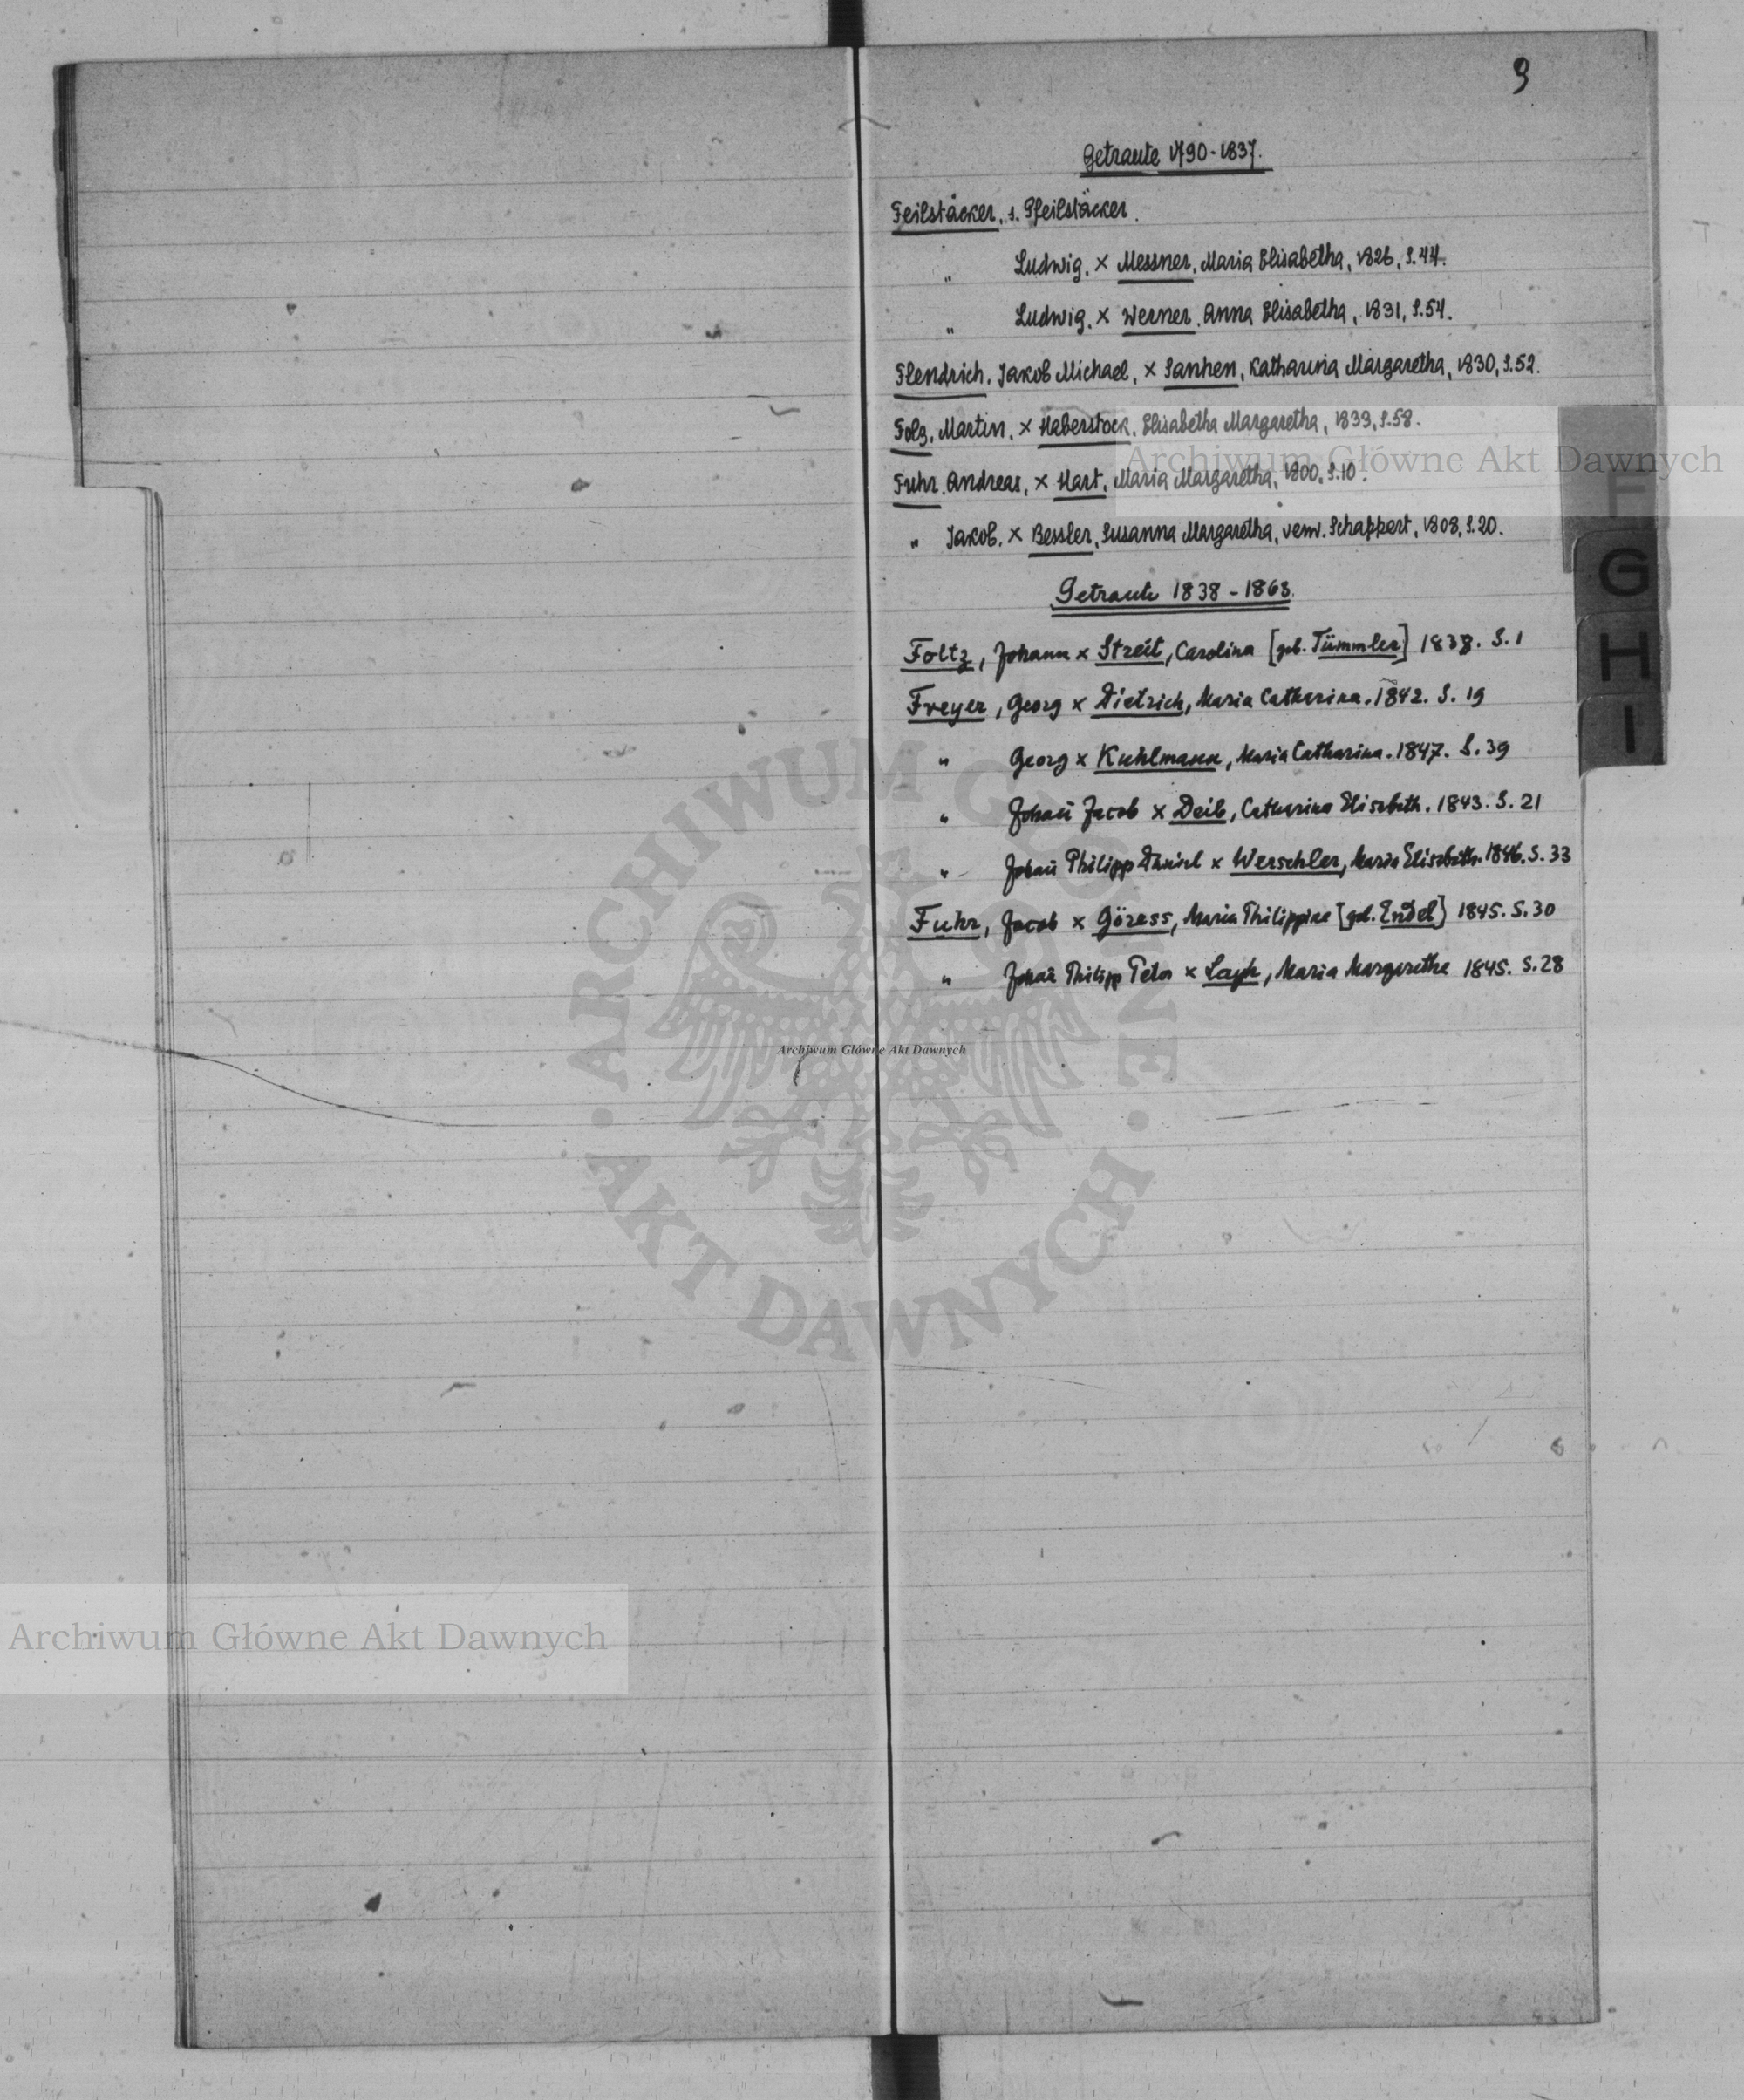 9
Getraute 1790-1837.
Feilstäcker, s. Pfeilstäcker.
" Ludwig, × Messner, Maria Elisabetha, 1826, S.44.
" Ludwig, × Werner, Anna Elisabetha, 1831, S.54.
Flendrich, Jakob Michael, × Sanhen, Katharina Margaretha, 1830, S.52.
Folz, Martin, × Haberstock, Elisabetha Margaretha, 1833, S.58.
Fuhr, Andreas, × Hart, Maria Margaretha, 1800, S.10.
" Jakob, × Bessler, Susanna Margaretha, verw. Schappert, 1808, S.20.
Getraute 1838-1863.
Foltz, Johann × Streit, Carolina [geb. Tümmler] 1838. S. 1
Freyer, Georg × Dietrich, Maria Catharina. 1842. S. 19
" Georg × Kuhlmann, Maria Catharina. 1847. S. 39
" Johañ Jacob × Deib, Catharina Elisabeth. 1843. S. 21
" Johañ Philipp Daniel × Werschler, Maria Elisabeth. 1846. S. 33
Fuhr, Jacob × Göress, Maria Philippine [geb. Endel] 1845. S. 30
" Johañ Philipp Peter × Layh, Maria Margaretha 1845. S. 28
F
G
H
I
Archiwum Główne Akt Dawnych
ARCHIWUM GŁÓWNE
AKT DAWNYCH
Archiwum Główne Akt Dawnych
Archiwum Główne Akt Dawnych